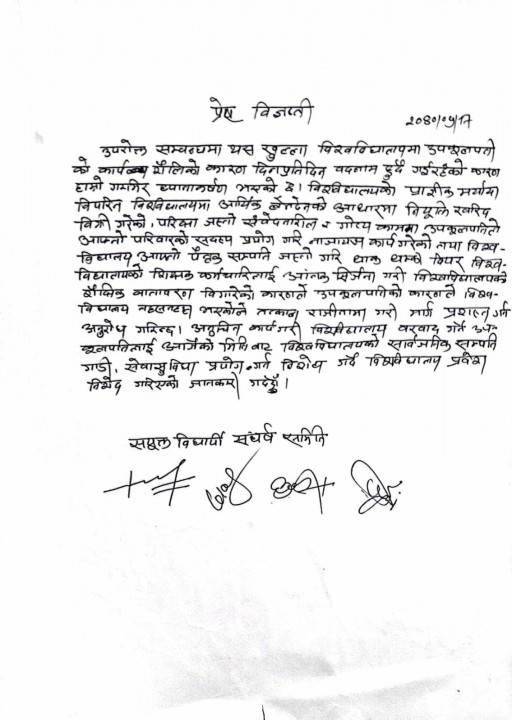 प्रेष विज्ञप्ती
२०८०/०५/१७
उपरोक्त सम्बन्धमा यस विश्वविद्यालयमा उपकुलपती
को कार्य शैलिको कारण दिनप्रतिदिन बदनाम हुदै गईरहेको कारण
हाम्रो गम्भिर ध्यानाकर्षण भएको छ। विश्वविद्यालयको प्राज्ञीक मर्यादा
विपरित विश्वविद्यालयमा आर्थिक लेनदेनको आधारमा नियूक्ति खरिद
विक्री गरेको, परिक्षा जस्तो संवेदनशिल र गोप्य काममा उपकुलपतिले
आफ्नो परिवारको सदस्य प्रयोग गरि नाजायज कार्य गरेको तथा विश्व-
विद्यालय आफ्नो पैतृक सम्पति जस्तो गरि धाक धम्की दिएर विश्व-
विद्यालयको शिक्षक कर्मचारिलाई आतंक सिर्जना गरी विश्वविद्यालयको
शैक्षिक वातावरण विगारेको कारणले उपकुलपतिको कारणले विश्व-
विद्यालय भएकोले तत्काल राजीनामा गरी मार्ग प्रशस्त गर्न
अनुरोध गरिन्छ। अनुचित कार्य गरी विश्वविद्यालय बरवाद गर्ने उप-
कुलपतिलाई आजैको मिति बाट विश्वविद्यालयको सार्वजनिक सम्पति
गाडी, सेवासुविधा प्रयोग गर्न निशेध गर्दै विश्वविद्यालय प्रवेश
निशेध गरिएको जानकारी गर्दछौं।
संयुक्त विद्यार्थी संघर्ष समिति